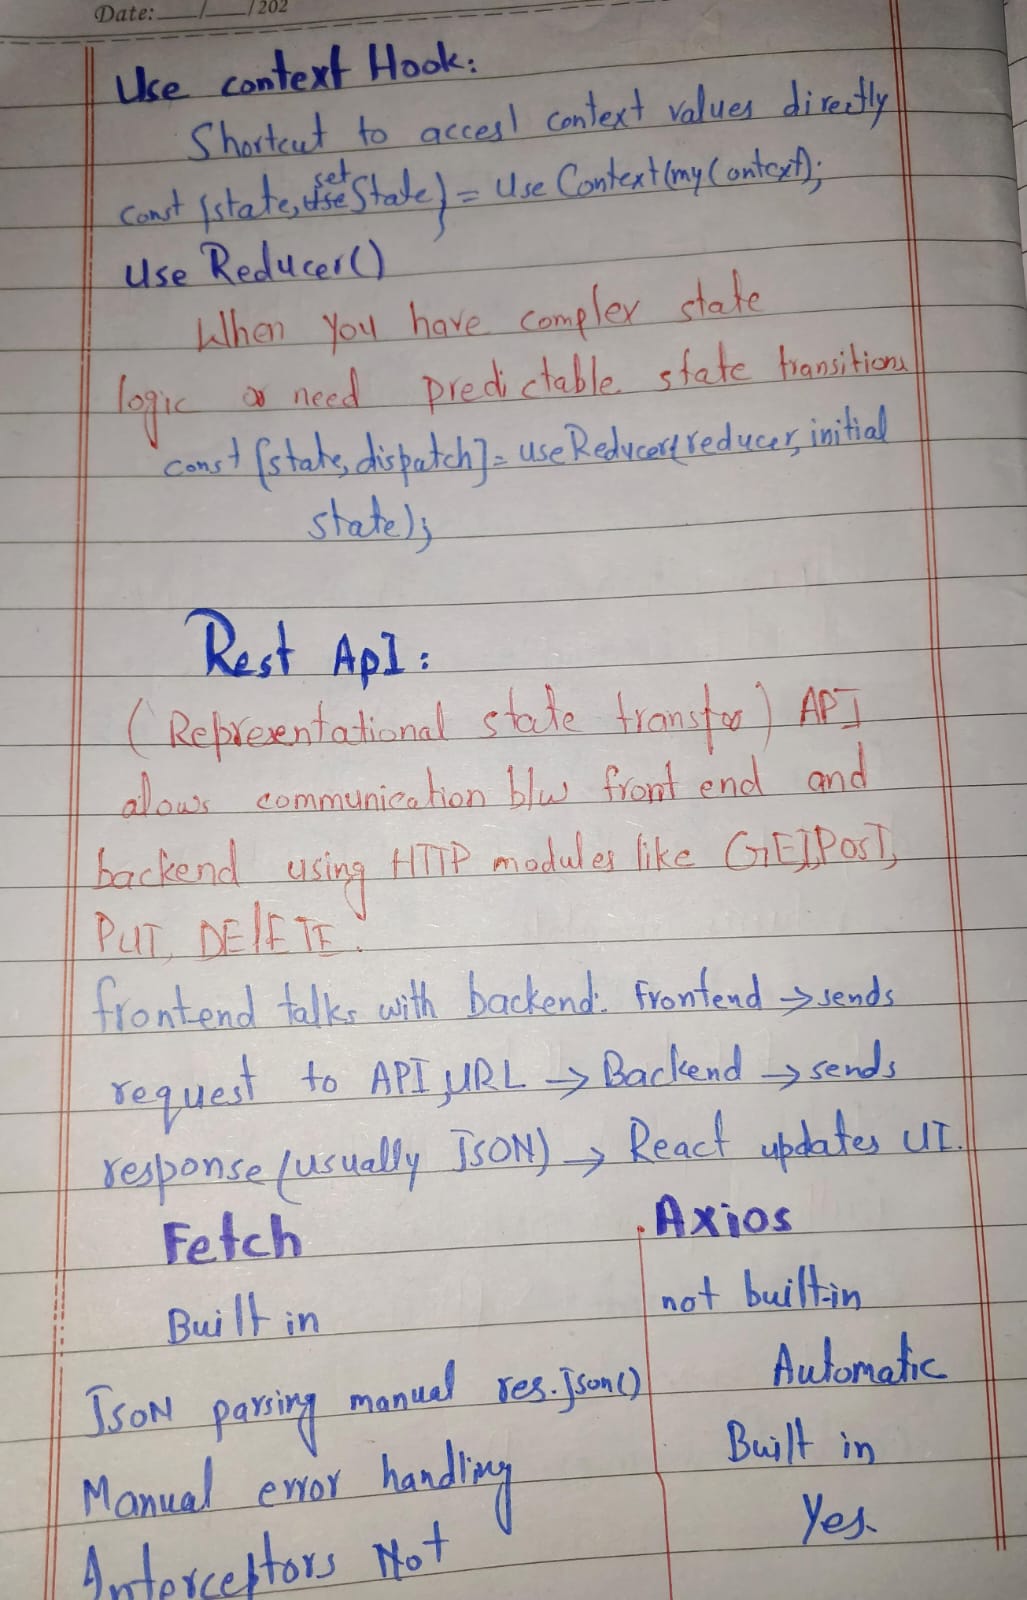 Date: __/__/202
Use context Hook:
Shortcut to access context values directly
const {state, setState} = Use Context(myContext);
Use Reducer()
When you have complex state
logic or need predictable state transitions
const [state, dispatch] = useReducer(reducer, initial
state);
Rest ApI:
(Representational state transfer) API
allows communication b/w front end and
backend using HTTP modules like GET, POST,
PUT, DElETE.
frontend talks with backend: Frontend → sends
request to API URL → Backend → sends
response (usually JSON) → React updates UI.
Fetch Axios
Built in not built-in
JSON parsing manual res.json() Automatic
Manual error handling Built in
Interceptors Not Yes